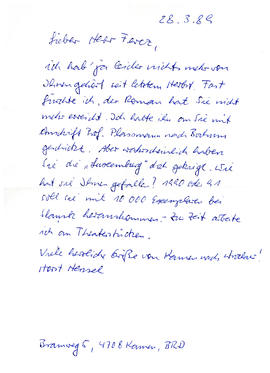 28.3.89
Lieber Herr Ferez,
ich hab' ja leider nichts mehr von
Ihnen gehört seit letztem Herbst. Fast
fürchte ich, der Roman hat Sie nicht
mehr erreicht. Ich hatte ihn an Sie mit
Anschrift Prof. Plassmann nach Bochum
geschickt. Aber wahrscheinlich haben
Sie die „ " doch gekriegt. Wie
hat sie Ihnen gefallen? 1990 oder 91
soll sie mit 10 000 Exemplaren bei
herauskommen. - Zur Zeit arbeite
ich an Theaterstücken.
Viele herzliche Grüße von Kamen nach
Horst Hensel
Bramweg 5, 4708 Kamen, BRD